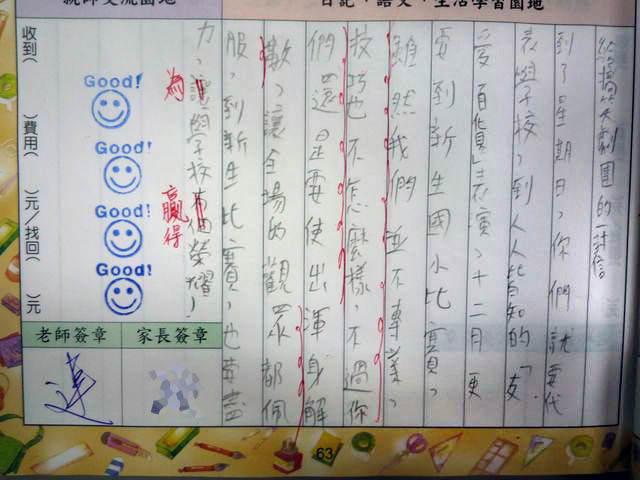 日記、語文、生活學習園地
給搞笑劇團的一封信
到了星期日，你們就要代
表學校，到人人皆知的「友
愛百貨」表演，十二月更
要到新生國小比賽，
雖然我們並不專業，
技巧也不怎麼樣，不過你
們還是要使出渾身解
數，讓全場的觀眾都佩
服，到新生比賽，也要盡
力，讓學校有個榮耀！
為
贏得
親師交流園地
Good!
Good!
Good!
Good!
收到( )費用( )元/找回( )元
家長簽章
老師簽章
63